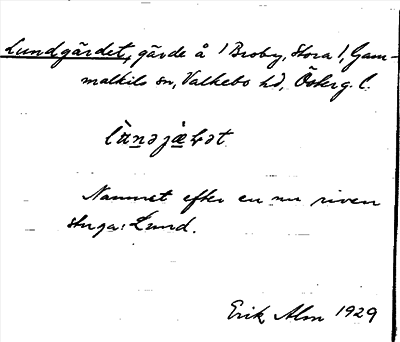 Lundgärdet, gärde å 1 Broby, Stora 1, Gam-
malkils sn, Valkebo hd, Österg. l.
Namnet efter en nu riven
stuga: Lund.
Erik Alm 1929